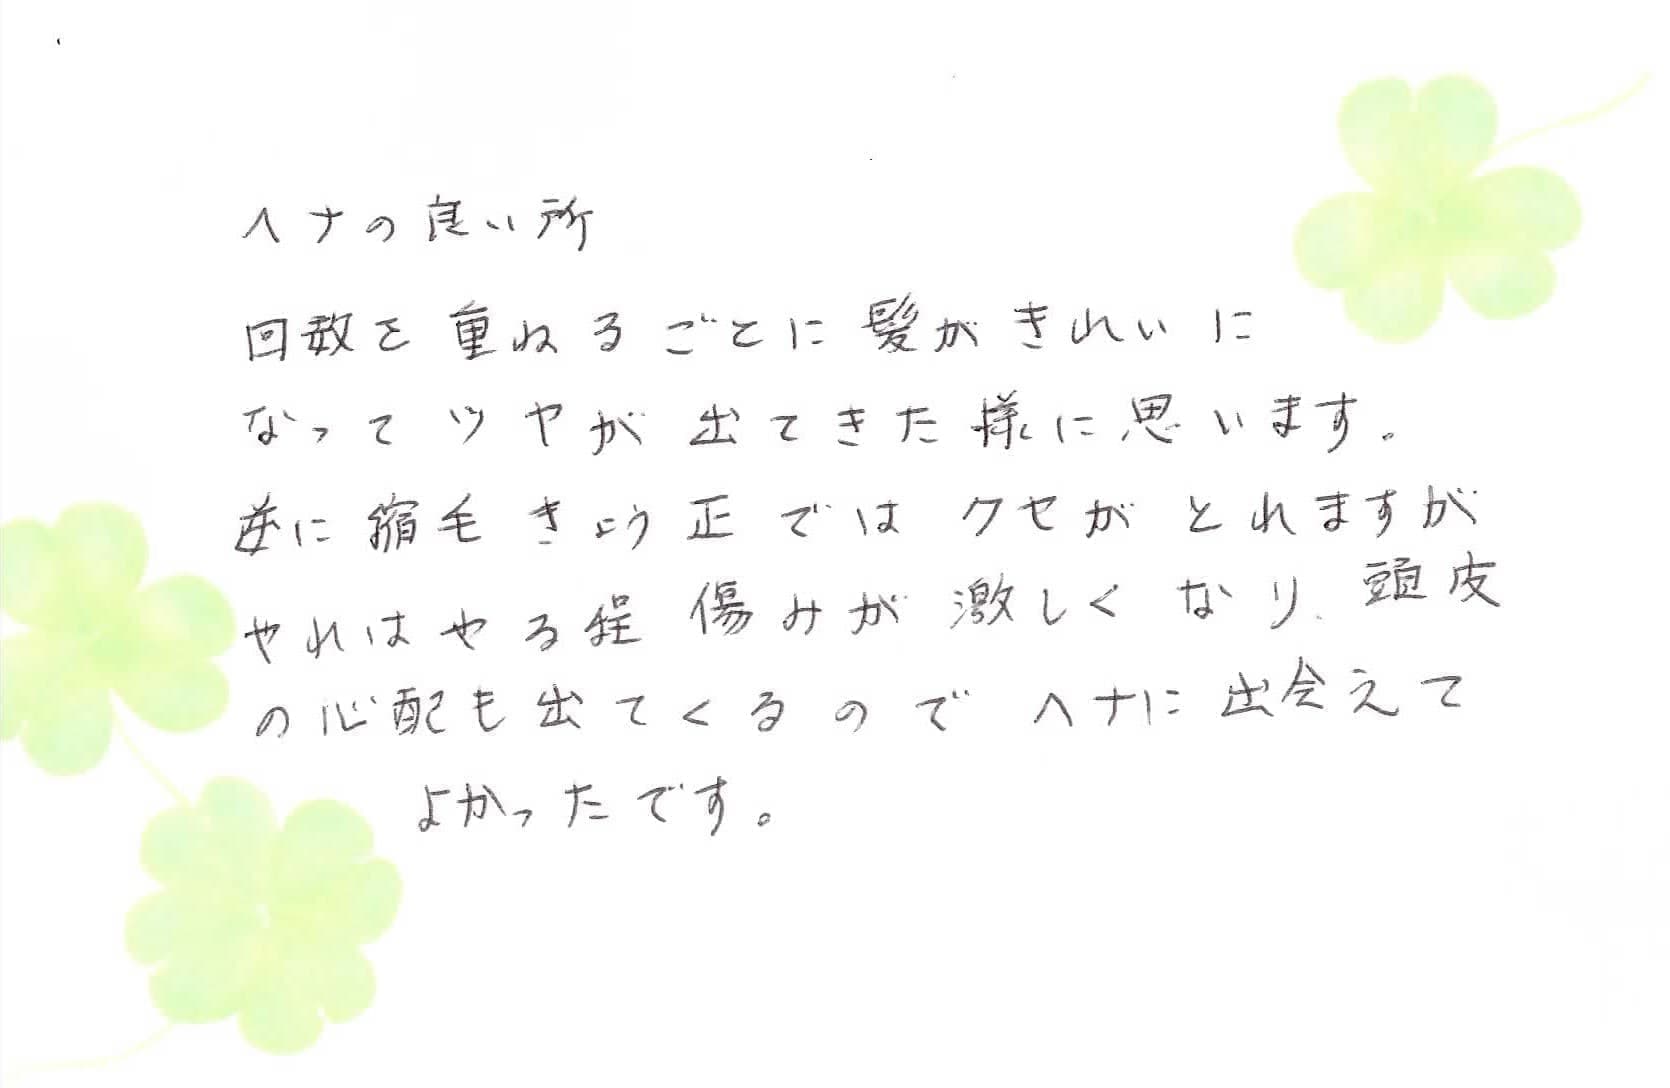 ヘナの良い所
回数を重ねるごとに髪がきれいに
なってツヤが出てきた様に思います。
逆に縮毛きょう正ではクセがとれますが
やればやる程傷みが激しくなり、頭皮
の心配も出てくるのでヘナに出会えて
よかったです。